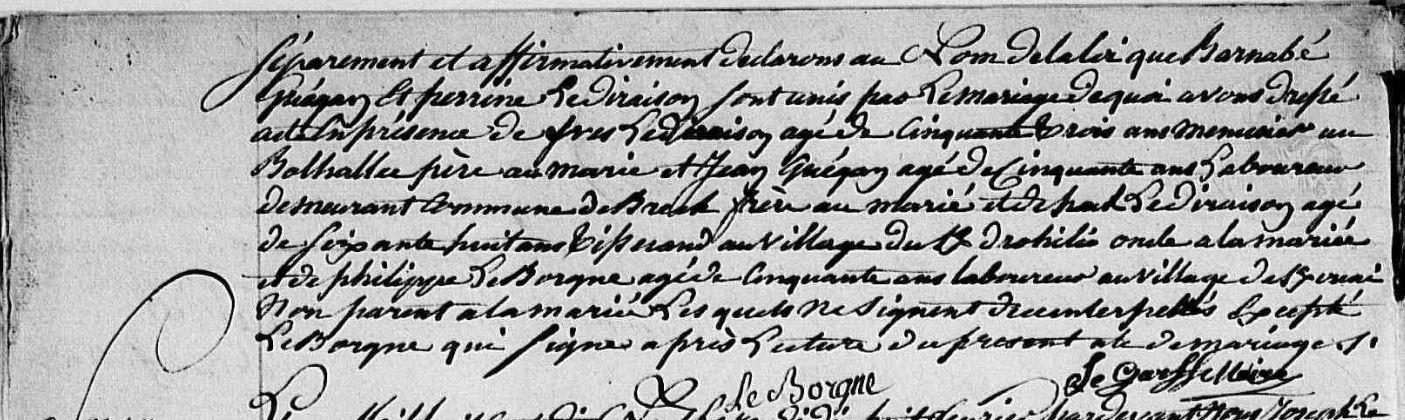 séparement et affirmativement declarons au Nom de la loi que Barnabé
Guégan Et perrine Le diraison sont unis par Le mariage de quoi avons dressé
acte En présence de yves Le diraison agé de Cinquante trois ans menusier au
père au marié et Jean Guégan agé de Cinquante ans Laboureur
demeurant Commune de Brech frère au marié et de Le diraison agé
de soixante huit ans tisserand au village du oncle a la mariée
et de philippe Le Borgne agé de Cinquante ans laboureur au village de
Non parent a la mariée Les quels ne signent de ce interpellés Excepté
Le Borgne qui signe après Lecture du present acte de mariage
Le Borgne